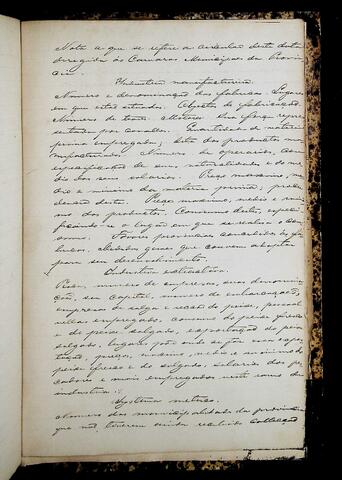 Nota a que se refere a circular desta data
dirigida às Camaras Municipaes da Provin
cia.
Industria manufactureira.
Numero e denominação das fabricas. Lugares
em que estão situados. Objecto de fabricação.
Numero de teares. Motores. Sua força repre
sentada por cavallos. Quantidade de materia
prima empregada; dita dos productos ma
nufacturados. Numero de operarios, com
especificação de sua naturalidade e do me
dio dos seus salarios. Preço maximo, me
dio e minimo da materia prima; proce
dencia desta. Preço maximo, medio e mini
mo dos productos. Consumo destes, especi
ficando-se o lugar em que se realisa o con
sumo. Favores provinciaes concedidos às fa
bricas. Medidas geraes que convem adoptar
para seu desenvolvimento.
Industria extractiva.
Pesca, numero de emprezas, sua denomina
ção, seu capital, numero de embarcações,
emprezas de salga e secção do peixe, pessoal
nellas empregado, consumo do peixe fresco
e do peixe salgado, exportação do peixe
salgado, lugares para onde se faz essa expor
tação, preço, maximo, medio e minimo do
peixe fresco e do salgado, salarios dos pes
cadores e mais empregados neste ramo de
industria.
Systema metrico.
Numero das municipalidades da provincia
que não tiverem ainda recebido collecção